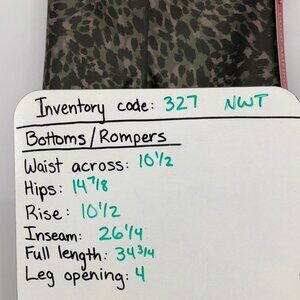 Inventory code: 327 NWT
Bottoms/Rompers
Waist across: 10 1/2
Hips: 14 7/8
Rise: 10 1/2
Inseam: 26 1/4
Full length: 34 3/4
Leg opening: 4